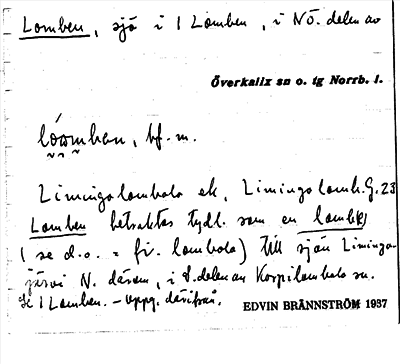 Lomben, sjö i I Lomben, i NÖ. delen av
Överkalix sn o. tg Norrb. l.
lóomben, bf. m.
Limingolombolo ek, Limingolomb. G. 23
Lomben betraktas tydl. som en lombol
(se d.o. = fi. lombolo) till sjön Limingo-
järvi N. därom, i S. delen av Korpilombolo sn.
Se I Lomben. – uppg. därifrån.
EDVIN BRÄNNSTRÖM 1937